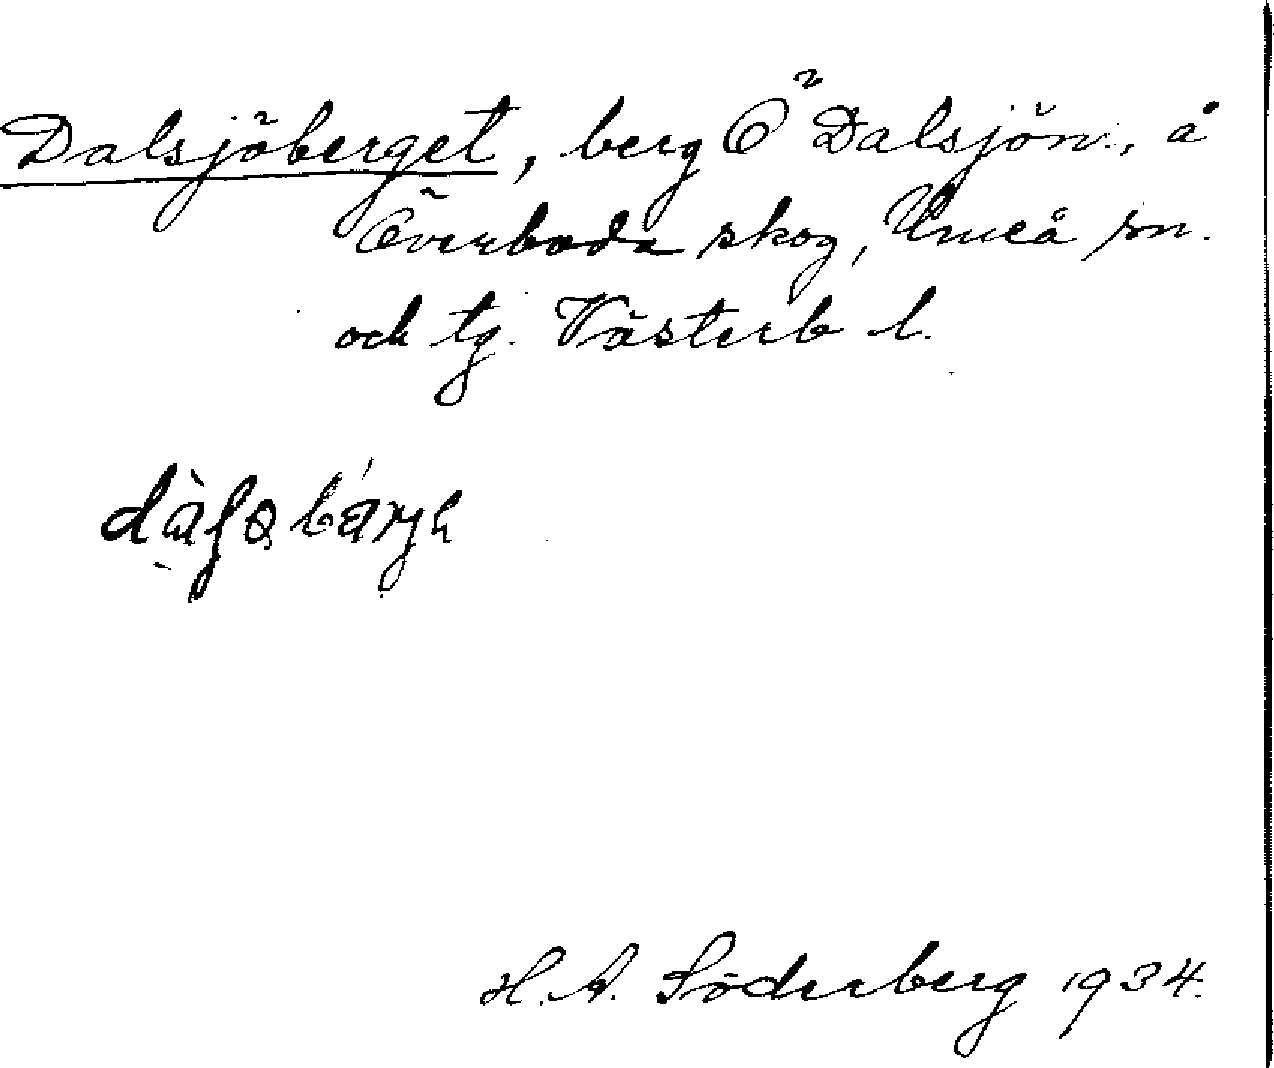 Dalsjöberget, berg Ö Dalsjön, å
Överboda skog, Umeå sn.
och tg. Västerb l.
H. A. Söderberg 1934.